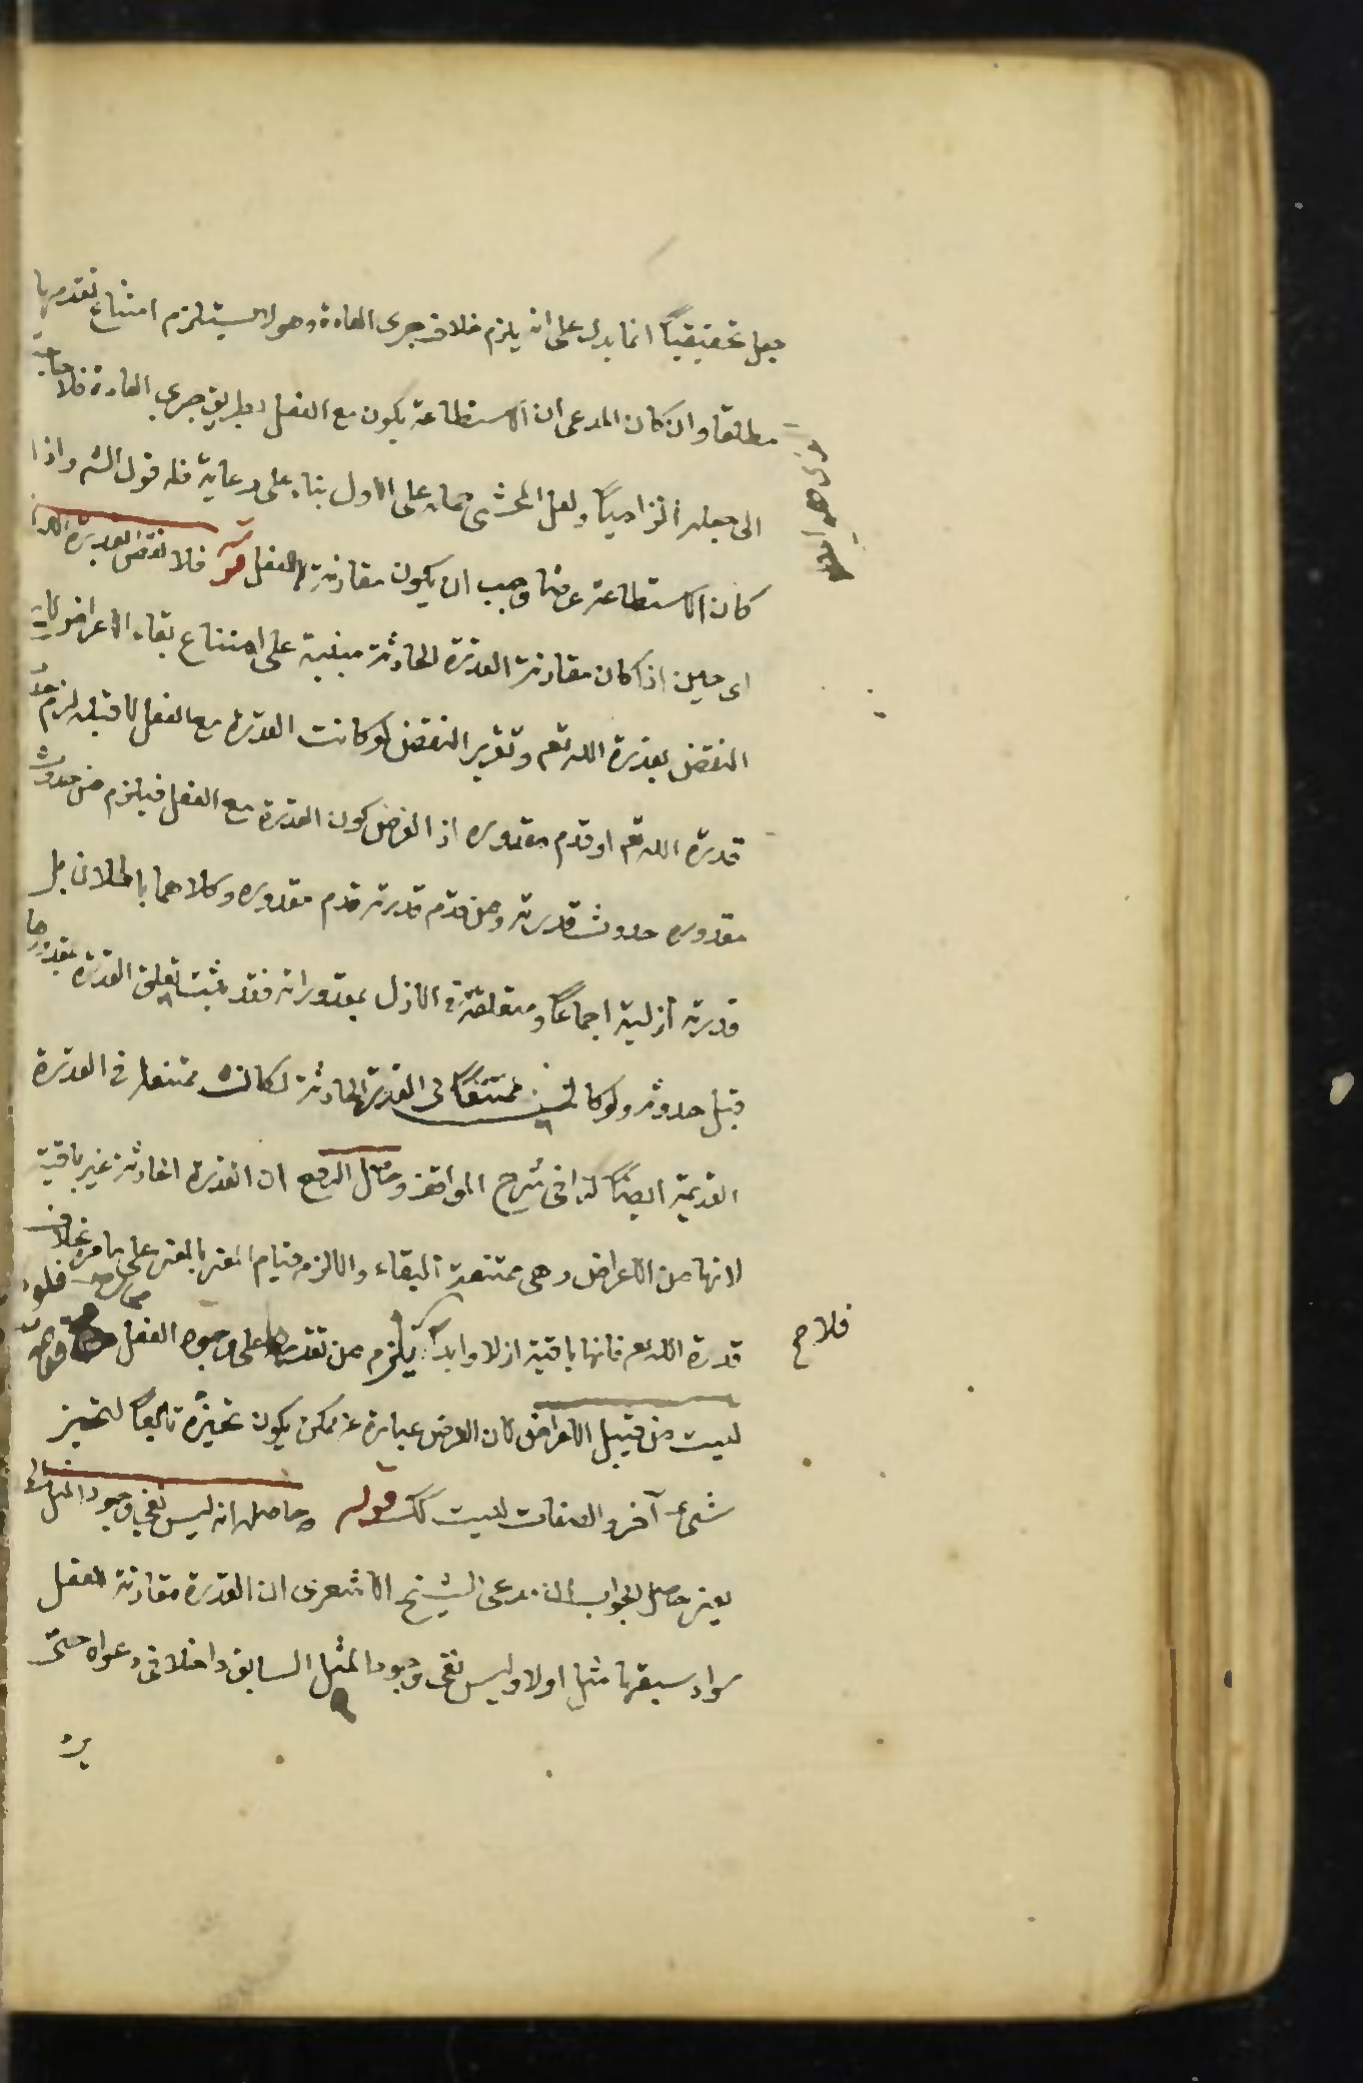 جعل تحقيقياً انما يدل على انه يلزم خلاف جرى العادة وهو لا يستلزم امتناع تقدمها
مطلقا وان كان المدعى ان الاستطاعة يكون مع الفعل بطريق جرى العادة فلا حاجة
الى جعله الزامياً ولعل المحشى حمله على الاول بناء على رعاية قول الشم واذا
كان الاستطاعة عرضا وجب ان يكون مقارنة للفعل قوله فلا نقض بقدرة الله
اى حين اذ كان مقارنة القدرة الحادثة مبنية على امتناع بقاء الاعراض
النقض بقدرة الله تعم وتقرير النقض لو كانت القدرة مع الفعل لا قبله لزم حدوث
قدرة الله تعم او قدم مقدوره اذ الفرض كون القدرة مع الفعل فيلزم من حدوث
مقدوره حدوث قدرته ومن قدم قدرته قدم مقدوره وكلاهما باطلان بل
قدرته ازلية اجماعاً ومتعلقة فى الازل بمقدوراته فقد ثبت تعلق القدرة بمقدورها
قبل حدوثه ولو كان ممتنعاً فى القدرة الحادثة لكان ممتنعا فى القدرة
القديمة ايضاً كذا فى شرح المواقف وحاصل الدفع ان القدرة الحادثة غير باقية
لانها من الاعراض وهى ممتنعة البقاء والا لزم قيام المعنى بالمعنى على ما مر بخلاف
قدرة الله تعم فانها باقية ازلا وابداً يلزم من تقدمها على وجود الفعل
فلا صح
ليست من قبيل الاعراض لان العرض عبارة عن ممكن يكون تحيزه تابعاً لتحيز
شئ آخر والصفات ليست كك قوله وحاصله انه ليس نفى وجود المثل
يعنى حاصل الجواب ان مدعى الشيخ الاشعرى ان القدرة مقارنة للفعل
سواء سبقها مثل اولا وليس نفى وجود المثل السابق داخلا فى دعواه حتى
يرد